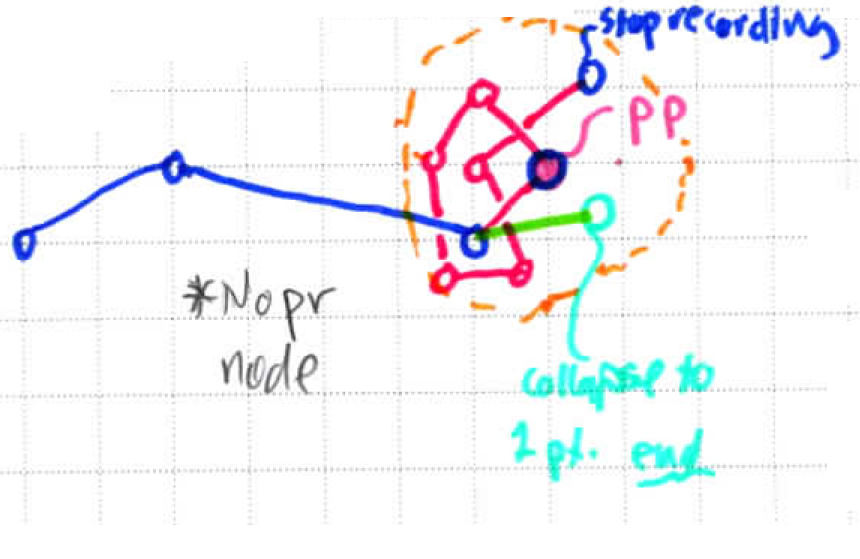 stop recording
PP
*No pr
node
collapse to
1 pt. end